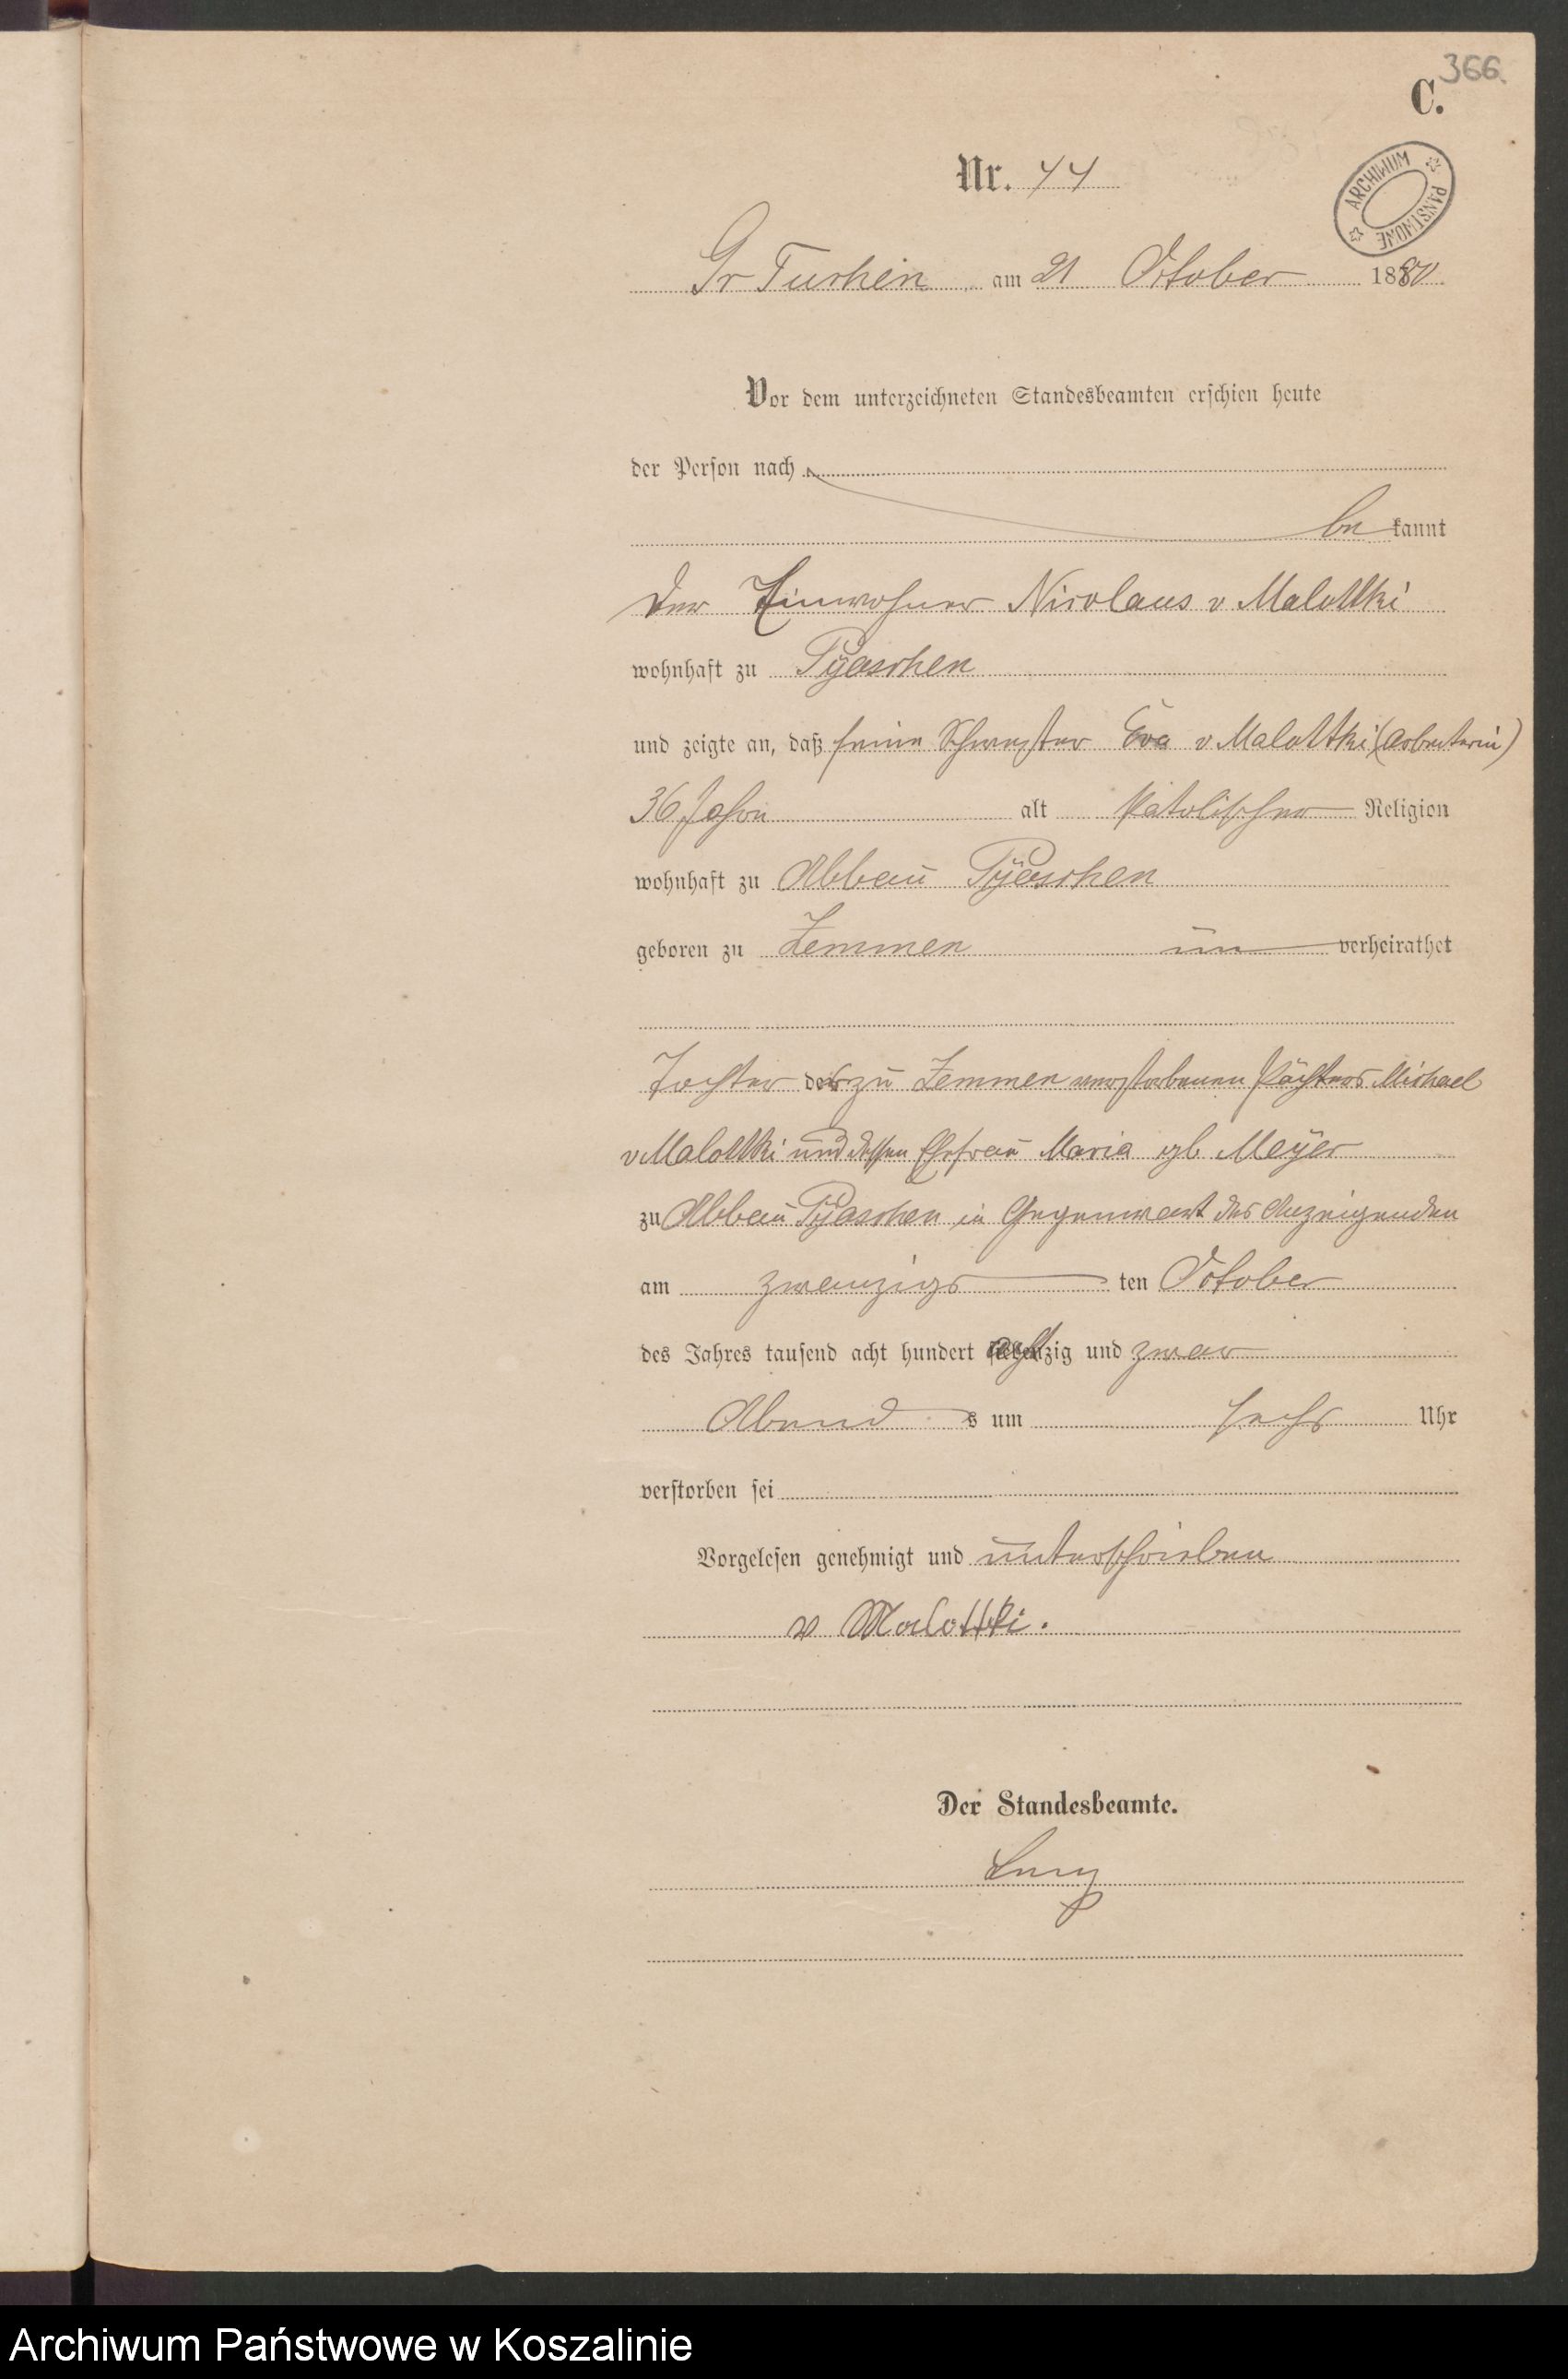 366.
C.
Nr. 44
ARCHIWUM PAŃSTWOWE
Gr Tuchen am 21 October 1880.
Vor dem unterzeichneten Standesbeamten erschien heute
der Person nach
be kannt
der Einwohner Nicolaus v Malottki
wohnhaft zu Pyaschen
und zeigte an, daß seine Schwester Eva v Malottki (Arbeiterin)
36 Jahre alt katolischer Religion
wohnhaft zu Abbau Pyaschen
geboren zu Zemmen un verheirathet
Tochter des zu Zemmen verstorbenen Pächters Michael
v Malottki und dessen Ehefrau Maria gb Meyer
zu Abbau Pyaschen in Gegenwart des Anzeigenden
am zwanzigs ten October
des Jahres tausend acht hundert achtzig und zwar
Abend s um sechs Uhr
verstorben sei
Vorgelesen genehmigt und unterschrieben
v Malottki.
Der Standesbeamte.
Archiwum Państwowe w Koszalinie